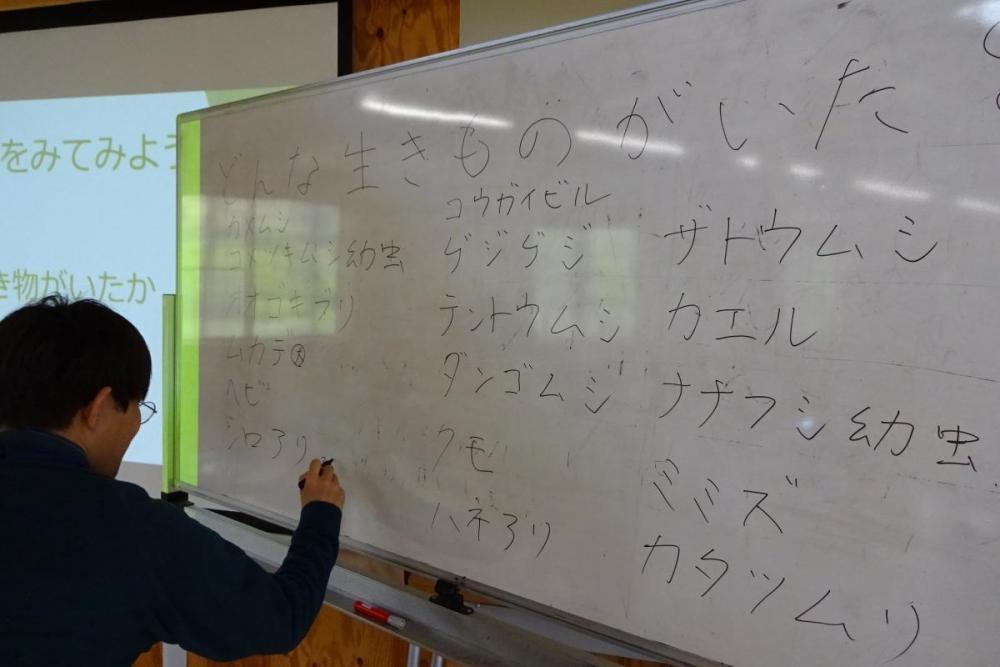 をみてみよう
き物がいたか
どんな生きものがいた
カメムシ
コメツキムシ幼虫
オオゴキブリ
ムカデ大
ヘビ
シロアリ
コウガイビル
ゲジゲジ
テントウムシ
ダンゴムジ
クモ
ハネアリ
ザトウムシ
カエル
ナナフシ幼虫
ミミズ
カタツムリ